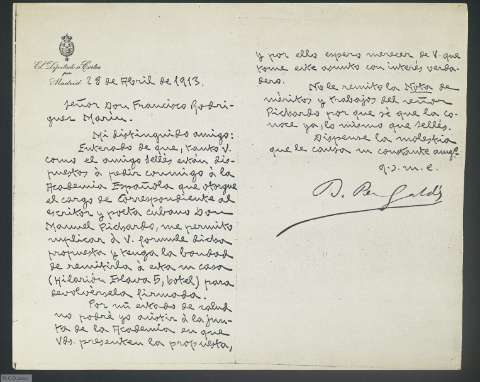 El Diputado a Cortes
por
Madrid
28 de Abril de 1913.
Señor Don Francisco Rodri-
guez Marin.
Mi distinguido amigo:
Enterado de que, tanto V.
como el amigo Sellés están dis-
puestos á pedir conmigo á la
Academia Española que otorgue
el cargo de Correspondiente al
escritor y poeta cubano Don
Manuel Pichardo, me permito
suplicar á V. formule dicha
propuesta y tenga la bondad
de remitirla á esta su casa
(Hilarión Eslava 5, hotel) para
devolvérsela firmada.
Por mi estado de salud
no podré yo asistir á la jun-
ta de la Academia en que
Vds presenten la propuesta,
y por ello espero merecer de V. que
tome este asunto con interés verda-
dero.
No le remito la Nota de
méritos y trabajos del señor
Pichardo por que sé que la co-
noce ya, lo mismo que Sellés.
Dispense la molestia
que le causa su constante amigº
q. s. m. e.
B. Perez Galdós